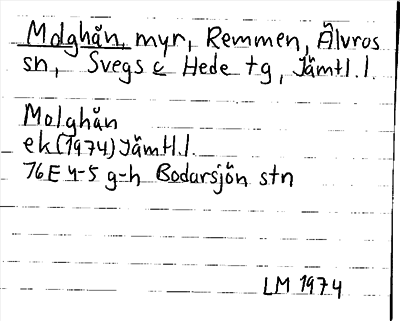 Molghån, myr, Remmen, Älvros
sn, Svegs o Hede tg, Jämtl.l.
Molghån
ek (1974) Jämtl.l.
76E 4-5 g-h Bodarsjön stn
LM 1974